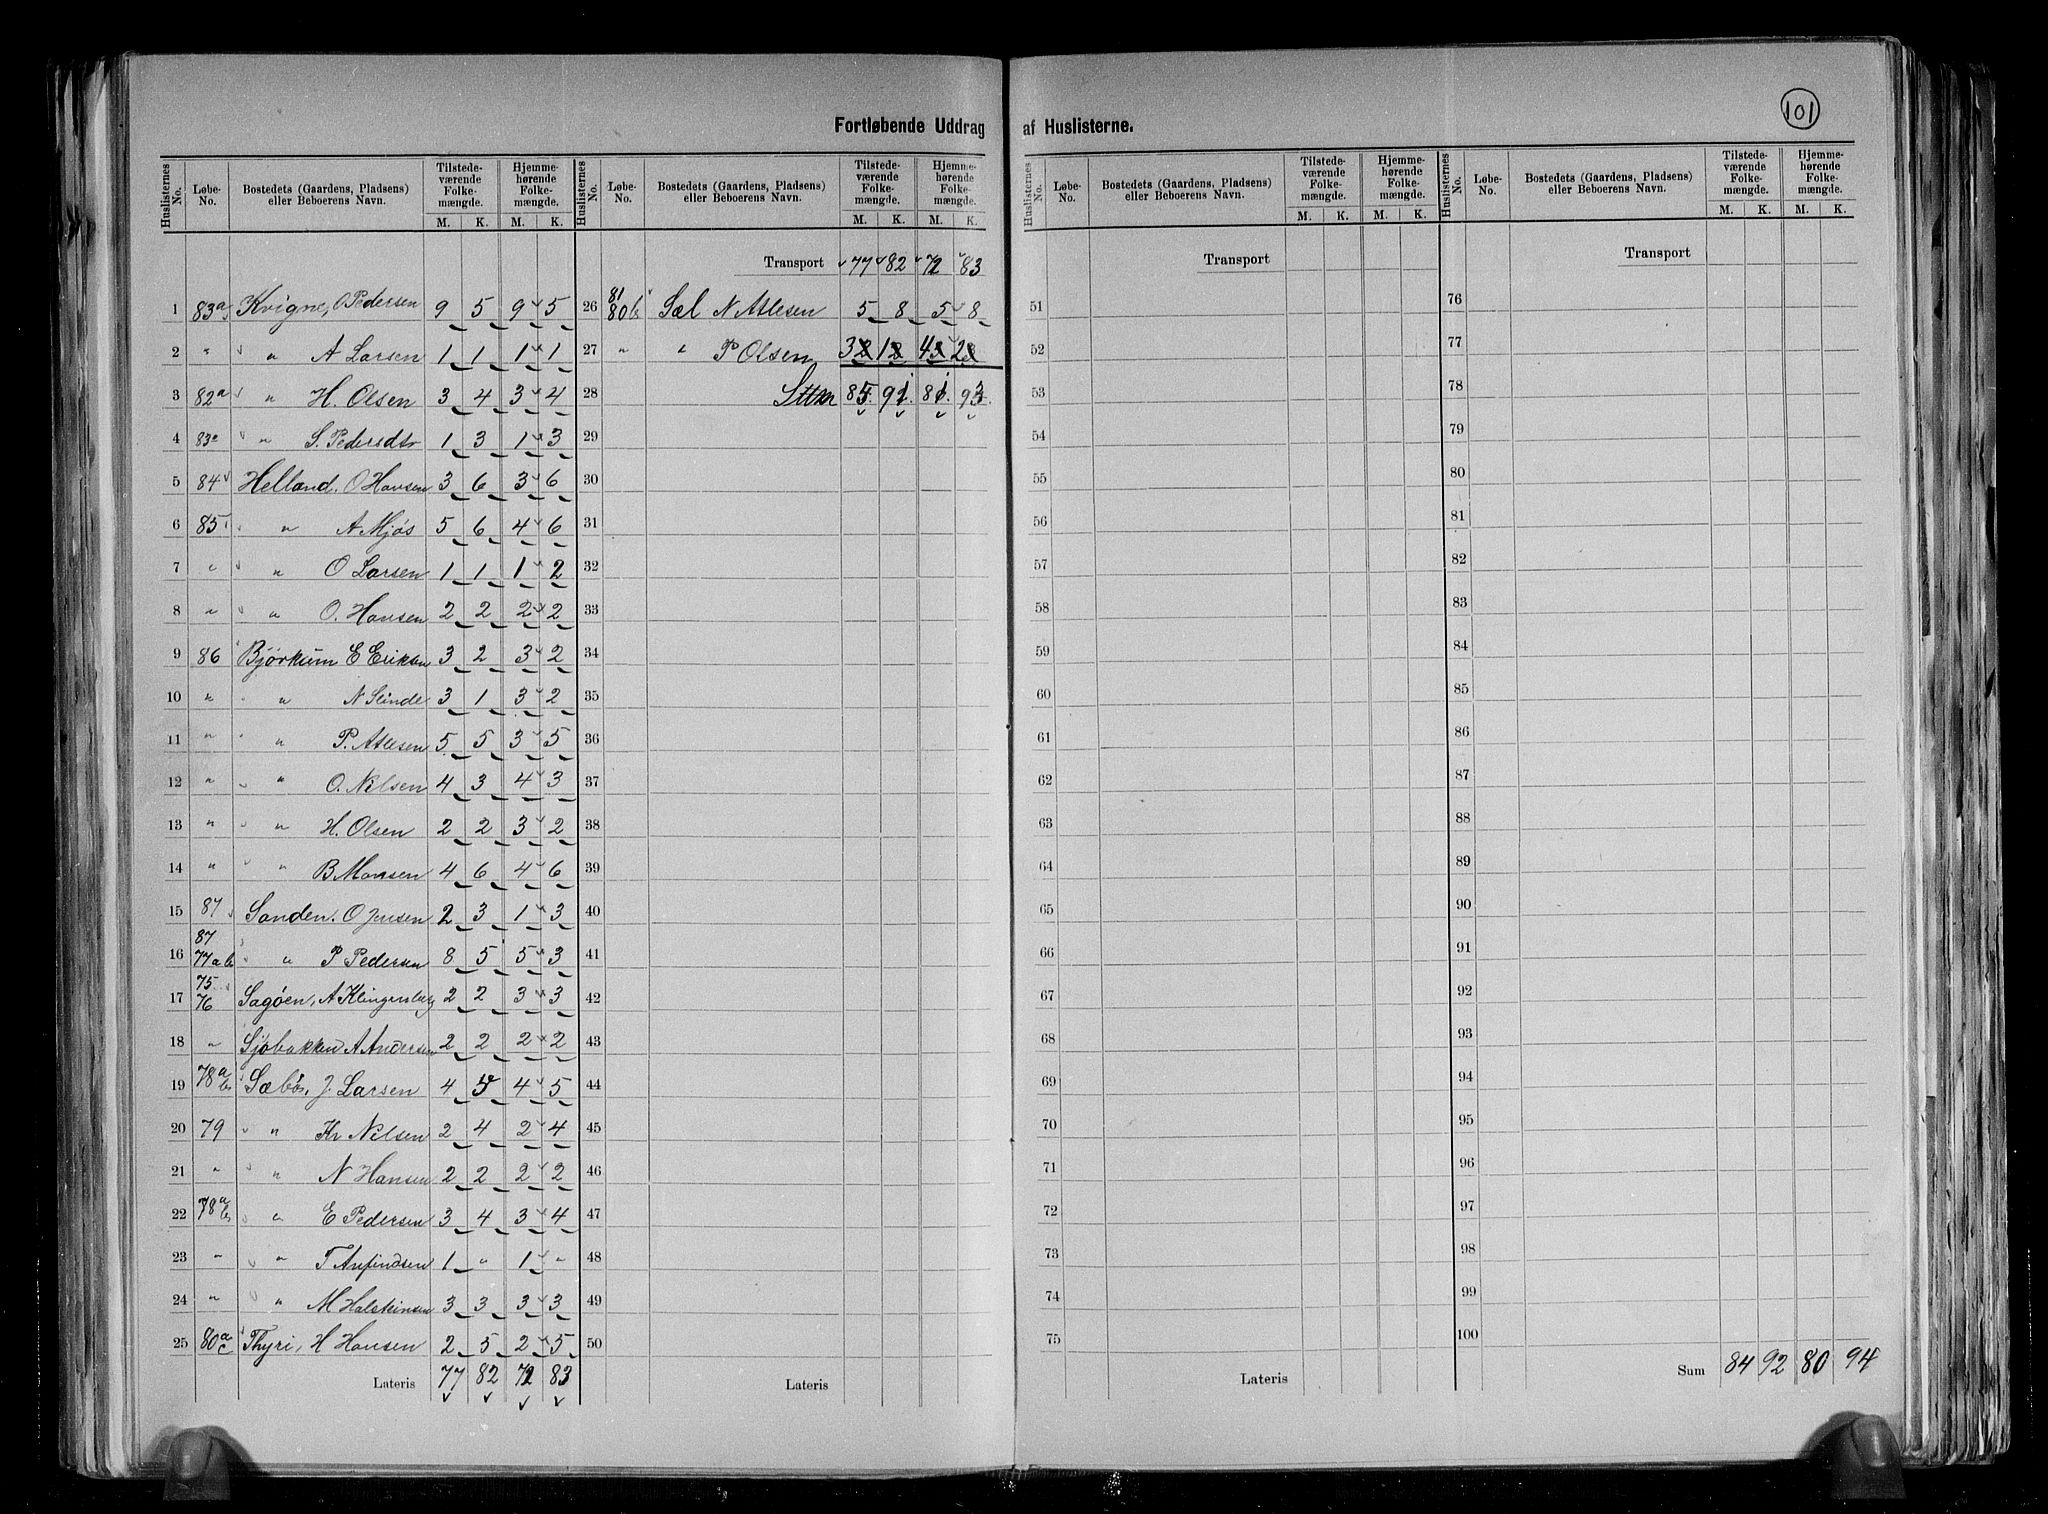 101
Fortløbende Uddrag af Huslisterne.
Huslisternes No. Løbe-No. Bostedets (Gaardens, Pladsens) eller Beboerens Navn. Tilstedeværende Folkemængde. M. K. Hjemmehørende Folkemængde. M. K.
1 83a Kvigne, O Pedersen 9 5 9 5
2 " " A Larsen 1 1 1 1
3 82a " H. Olsen 3 4 3 4
4 83 " S. Pedersdtr 1 3 1 3
5 84 Helland. O Hansen 3 6 3 6
6 85 " A Mjøs 5 6 4 6
7 " " O Larsen 1 1 1 2
8 " " O. Hansen 2 2 2 2
9 86 Bjørkum E Eriksen 3 2 3 2
10 " " N Slinde 3 1 3 2
11 " " P. Atlesen 5 5 3 5
12 " " O. Nilsen 4 3 4 3
13 " " H. Olsen 2 2 3 2
14 " " B Monsen 4 6 4 6
15 87 Sanden. O Jensen 2 3 1 3
16 87 77ab " P Pedersen 8 5 5 3
17 75 76 Sagøen, A Klingenberg 2 2 3 3
18 " Sjøbakken A Andersen 2 2 2 2
19 78a b Sæbø, J Larsen 4 5 4 5
20 79 " Kr Nilsen 2 4 2 4
21 " " N Hansen 2 2 2 2
22 78a b " E Pedersen 3 4 3 4
23 " " T Anfindsen 1 " 1 "
24 " " M Halsteinsen 3 3 3 3
25 80a c Thyri, H Hansen 2 5 2 5
Lateris 77 82 72 83
Huslisternes No. Løbe-No. Bostedets (Gaardens, Pladsens) eller Beboerens Navn. Tilstedeværende Folkemængde. M. K. Hjemmehørende Folkemængde. M. K.
Transport 77 82 72 83
26 81 80b Sæl N Atlesen 5 8 5 8
27 " " P Olsen 3 1 4 2
28 85 91 81 93
29
30
31
32
33
34
35
36
37
38
39
40
41
42
43
44
45
46
47
48
49
50
Lateris
Huslisternes No. Løbe-No. Bostedets (Gaardens, Pladsens) eller Beboerens Navn. Tilstedeværende Folkemængde. M. K. Hjemmehørende Folkemængde. M. K.
Transport
51
52
53
54
55
56
57
58
59
60
61
62
63
64
65
66
67
68
69
70
71
72
73
74
75
Lateris
Huslisternes No. Løbe-No. Bostedets (Gaardens, Pladsens) eller Beboerens Navn. Tilstedeværende Folkemængde. M. K. Hjemmehørende Folkemængde. M. K.
Transport
76
77
78
79
80
81
82
83
84
85
86
87
88
89
90
91
92
93
94
95
96
97
98
99
100
Sum 84 92 80 94